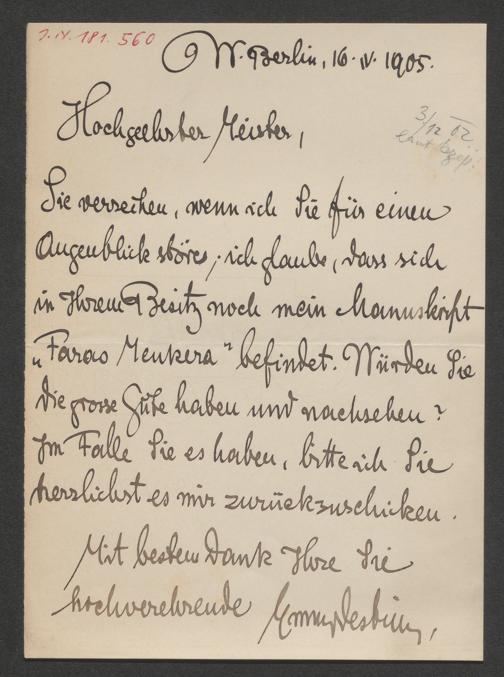 J.N. 181.560
W. Berlin, 16. IV. 1905.
Hochgeehrter Meister,
3/12 02.
laut
Sie verzeihen, wenn ich Sie für einen
Augenblick störe; ich glaube, dass sich
in Ihrem Besitz noch mein Manuskript
„Farao Menkera“ befindet. Würden Sie
die grosse Güte haben und nachsehen?
Im Falle Sie es haben, bitte ich Sie
herzlichst es mir zurückzuschicken.
Mit bestem Dank Ihre Sie
hochverehrende